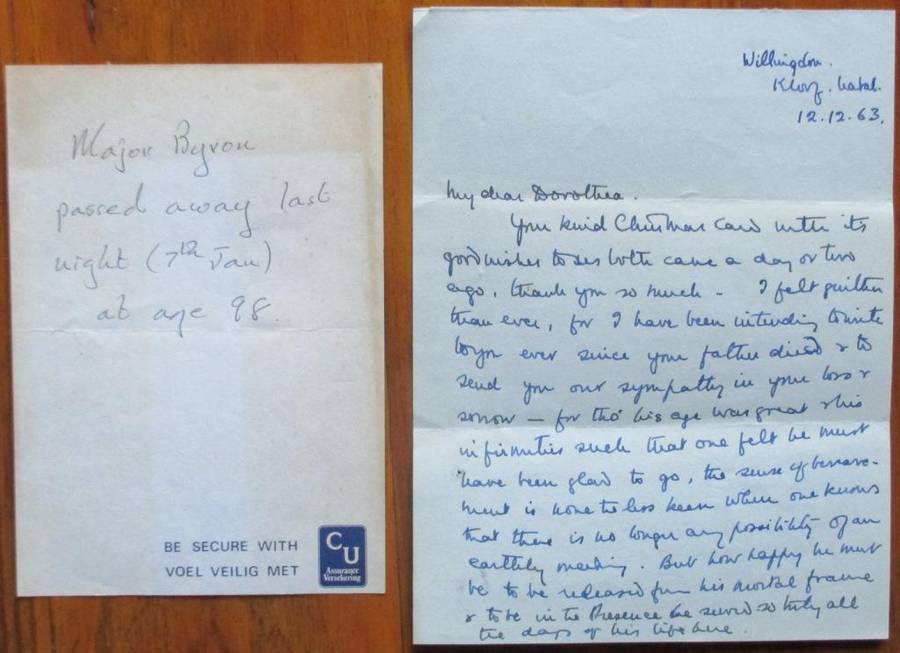 Major Byron
passed away last
night (7th Jan)
at age 98.
BE SECURE WITH
VOEL VEILIG MET
CU
Assurance
Versekering
Willingdon.
Kloof. Natal.
12.12.63,
My dear Dorothea.
Your kind Christmas Card with its
good wishes to us both came a day or two
ago, thank you so much - I felt guiltier
than ever, for I have been intending to write
to you ever since your father died & to
send you our sympathy in your loss &
sorrow — for tho' his age was great & his
infirmities such that one felt he must
have been glad to go, the sense of bereave-
ment is none the less keen when one knows
that there is no longer any possibility of an
earthly meeting. But how happy he must
be to be released from his mortal frame
& to be in the Presence he served so truly all
the days of his life here.